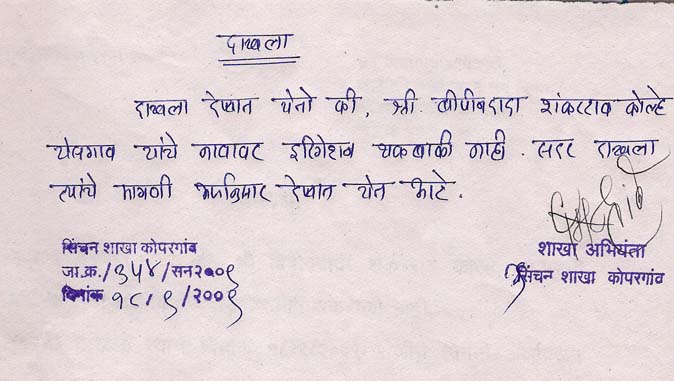 दाखला
दाखला देण्यात येतो की, श्री. बीपीनदादा शंकरराव कोल्हे
येसगाव यांचे नावावर इरिगेशन थकबाकी नाही. सदर दाखला
त्यांचे मागणी अर्जानुसार देण्यात येत आहे.
सिंचन शाखा कोपरगांव
जा.क्र./३५४/सन२००९
दिनांक १८/९/२००९
शाखा अभियंता
सिंचन शाखा कोपरगांव